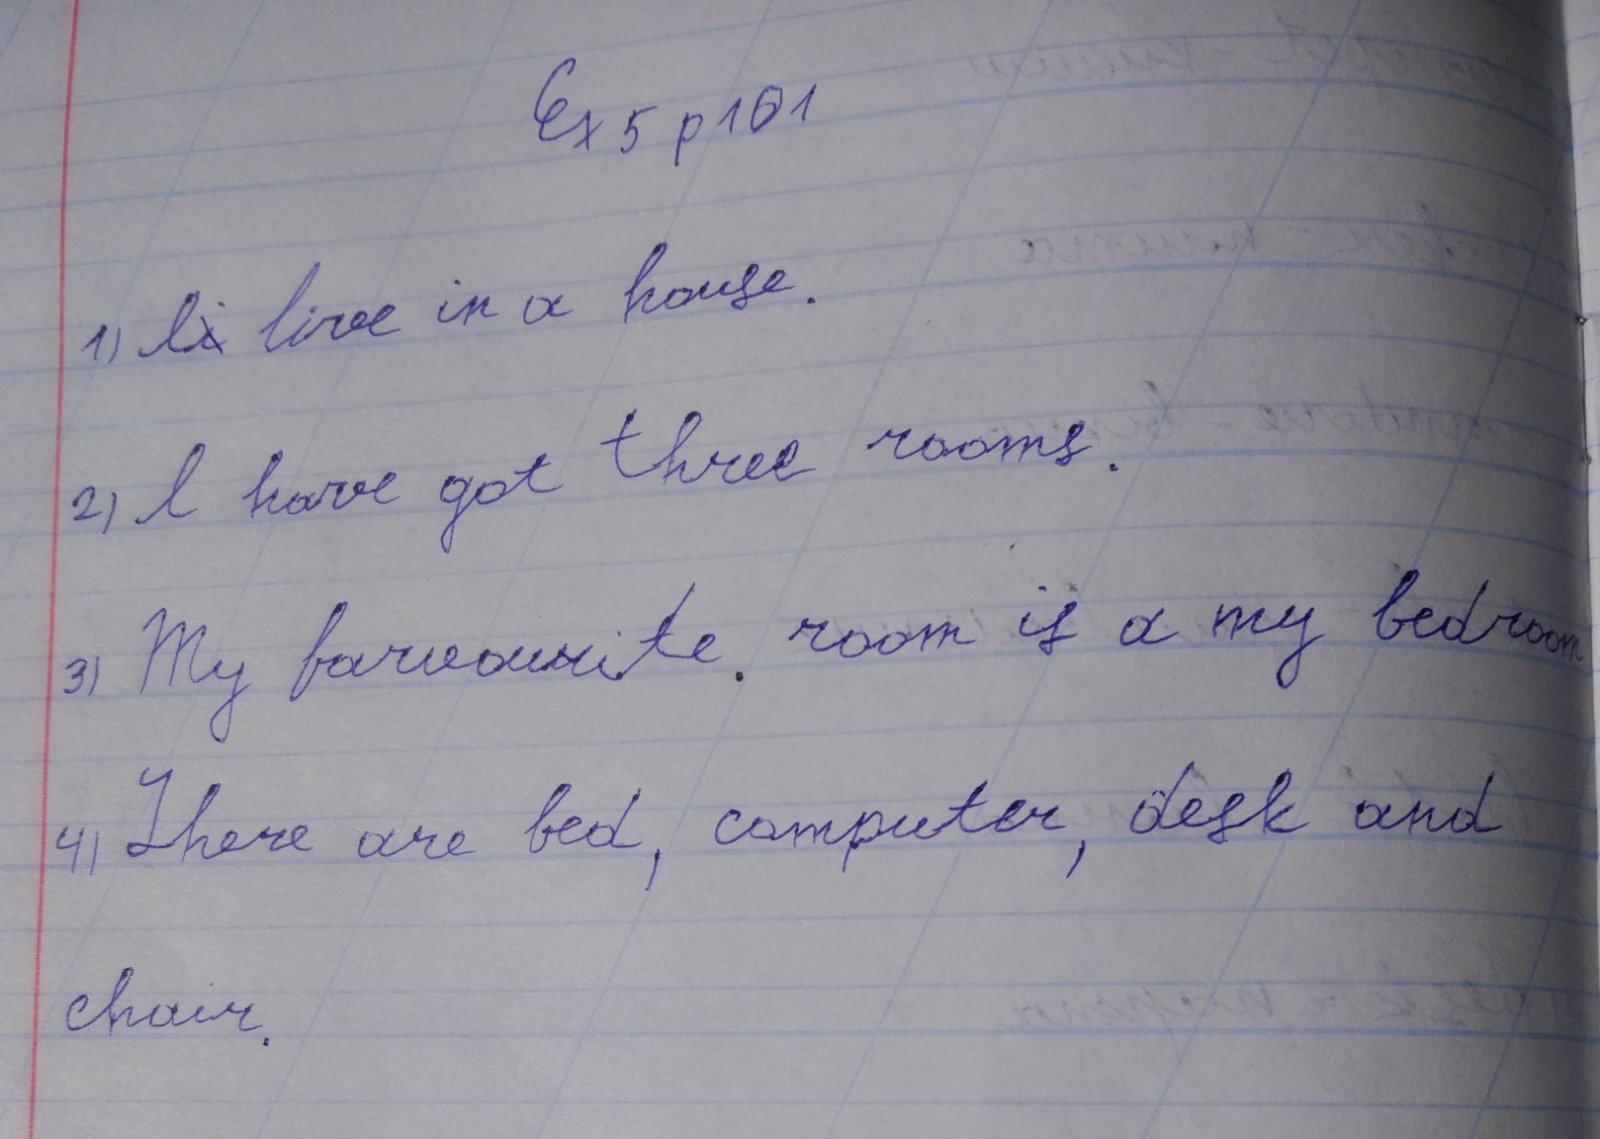 Ex 5 p 101
1) I live in a house.
2) I have got three rooms.
3) My farvourite. room is a my bedroom
4) There are bed, computer, desk and
chair.